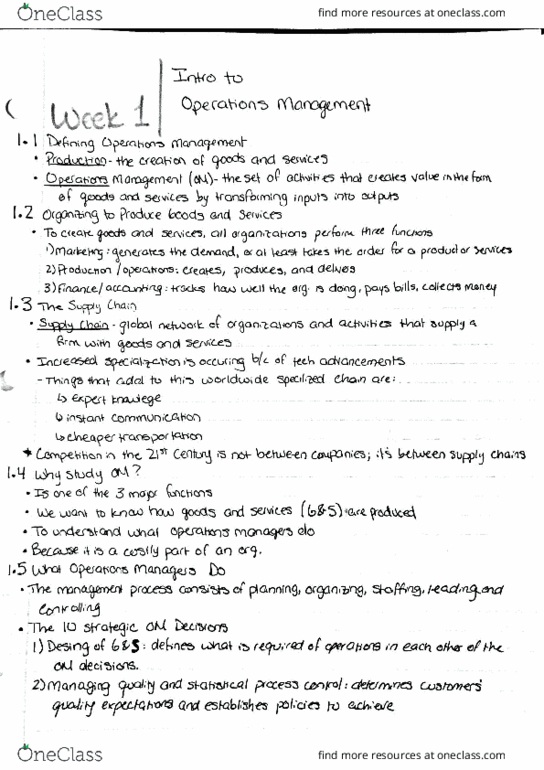 OneClass
find more resources at oneclass.com
Intro to
Week 1
Operations Management
1.1 Defining Operations Management
• Production - the creation of goods and services
• Operations Management (OM) - the set of activities that creates value in the form
of goods and services by transforming inputs into outputs
1.2 Organizing to Produce Goods and Services
• To create goods and services, all organizations perform three functions
1) Marketing: generates the demand, or at least takes the order for a product or services
2) Production / operations: creates, produces, and delives
3) Finance / accounting: tracks how well the org. is doing, pays bills, collects money
1.3 The Supply Chain
• Supply Chain - global network of organizations and activities that supply a
firm with goods and services
• Increased specialization is occuring b/c of tech advancements
- Things that add to this worldwide specilized chain are:
↳ expert knowlege
↳ instant communication
↳ cheaper transportation
* Competition in the 21st Century is not between companies; it's between supply chains
1.4 Why study OM?
• Is one of the 3 major functions
• We want to know how goods and services (G&S) are produced
• To understand what operations managers do
• Because it is a costly part of an org.
1.5 What Operations Managers Do
• The management process consists of planning, organizing, staffing, leading and
controlling
• The 10 strategic OM Decisions
1) Desing of G&S: defines what is required of operations in each other of the
OM decisions.
2) Managing quality and statistical process control: determines customers'
quality expectations and establishes policies to achieve
OneClass
find more resources at oneclass.com